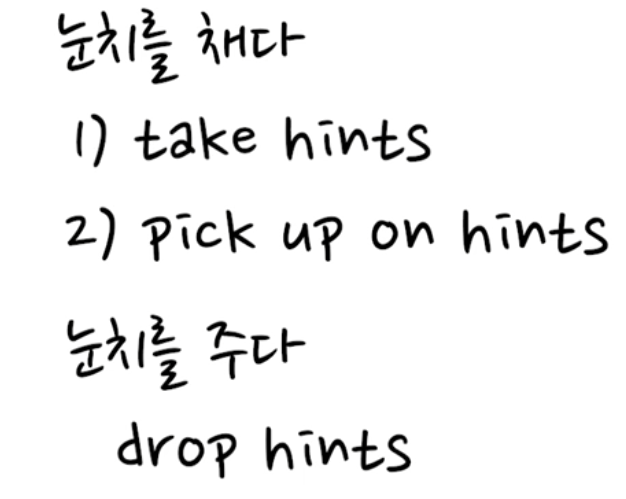 눈치를 채다
1) take hints
2) pick up on hints
눈치를 주다
drop hints